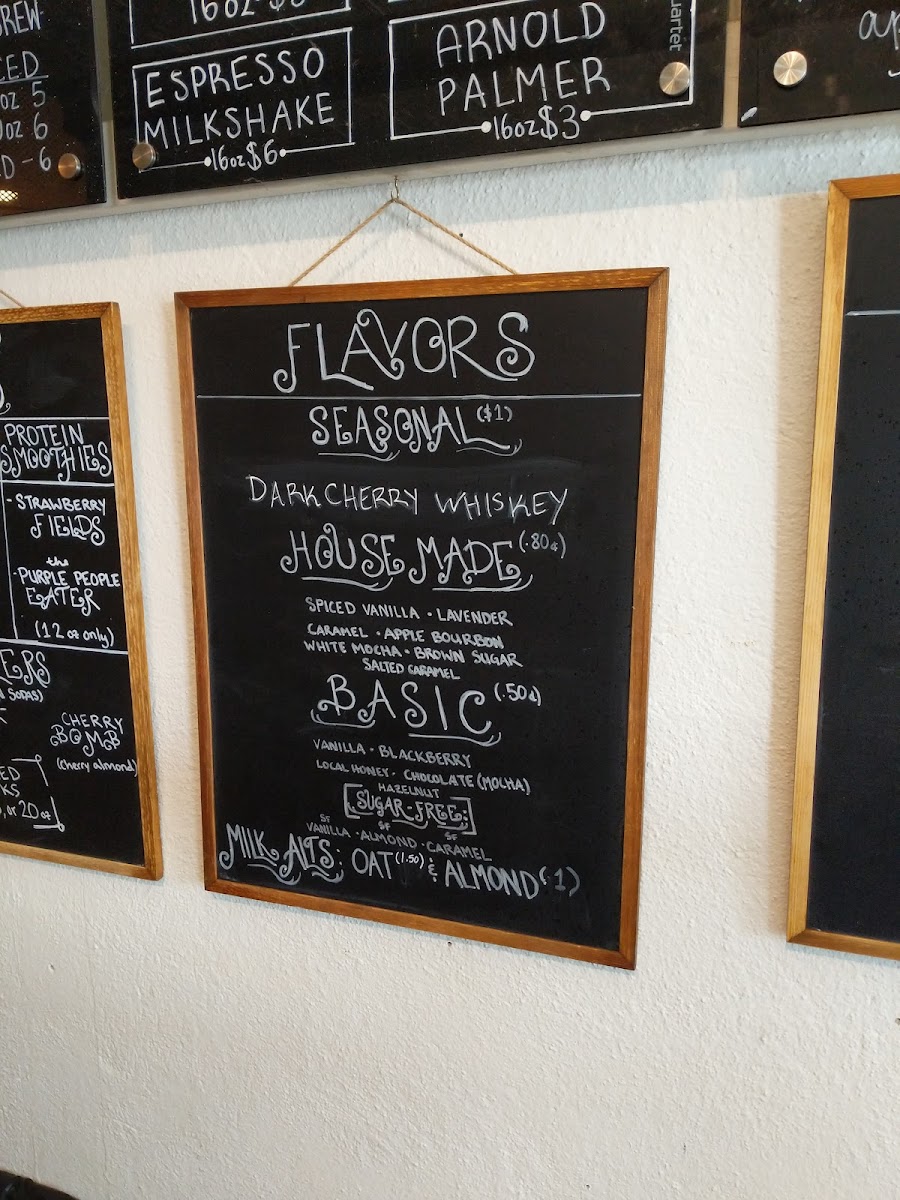 ESPRESSO
MILKSHAKE
16oz $6
ARNOLD
PALMER
16oz $3
quartet
FLAVORS
SEASONAL ($1)
DARK CHERRY WHISKEY
HOUSE MADE (.80¢)
SPICED VANILLA • LAVENDER
CARAMEL • APPLE BOURBON
WHITE MOCHA • BROWN SUGAR
SALTED CARAMEL
BASIC (.50¢)
VANILLA • BLACKBERRY
LOCAL HONEY • CHOCOLATE (MOCHA)
HAZELNUT
SUGAR-FREE:
SF SF SF
VANILLA • ALMOND • CARAMEL
MILK ALTS: OAT (1.50) & ALMOND ($1)
PROTEIN
SMOOTHIES
- STRAWBERRY
FIELDS
the
- PURPLE PEOPLE
EATER
(12 oz only)
CHERRY
BOMB
(cherry almond)
or 20 oz